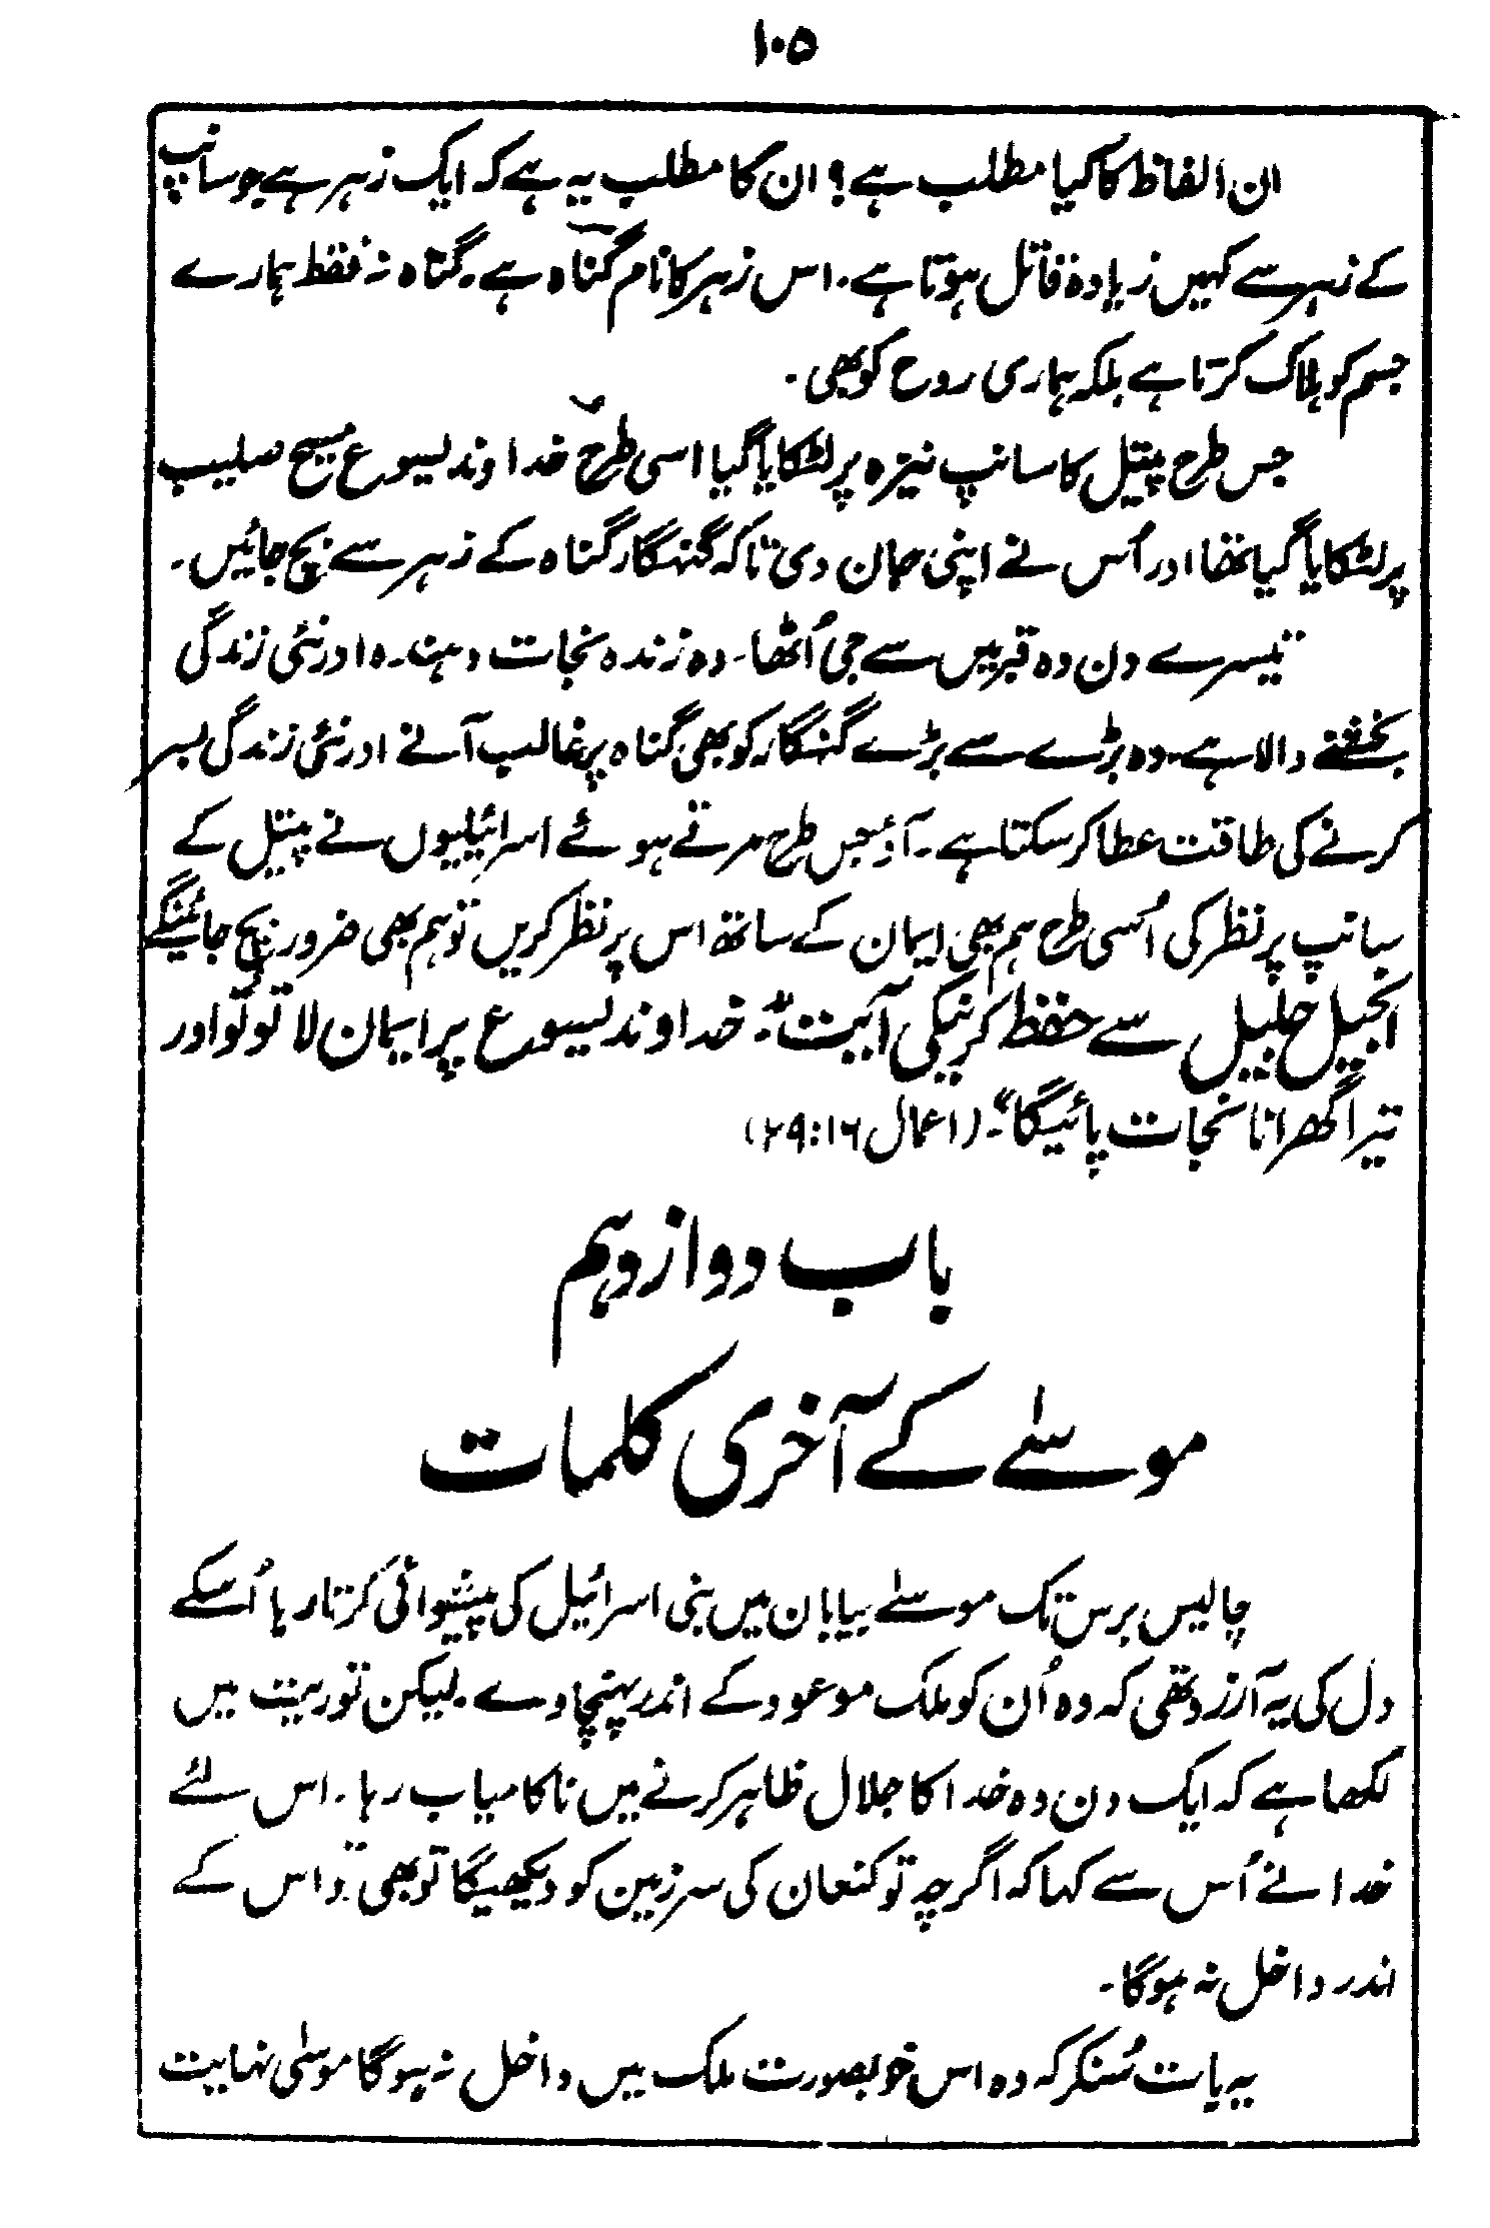 ۱۰۵
ان الفاظ کا کیا مطلب ہے؟ ان کا مطلب یہ ہے کہ ایک زہر ہے جو سانپ
کے زہر سے کہیں زیادہ قاتل ہوتا ہے۔ اس زہر کا نام گناہ ہے۔ گناہ نہ فقط ہمارے
جسم کو ہلاک کرتا ہے بلکہ ہماری روح کو بھی۔
جس طرح پیتل کا سانپ نیزہ پر لٹکایا گیا اسی طرح خداوند یسوع مسیح صلیب
پر لٹکایا گیا تھا اور اُس نے اپنی جان دی تاکہ گنہگار گناہ کے زہر سے بچ جائیں۔
تیسرے دن وہ قبر میں سے جی اُٹھا۔ وہ زندہ نجات دہندہ اور نئی زندگی
بخشنے والا ہے۔ وہ بڑے سے بڑے گنہگار کو بھی گناہ پر غالب آنے اور نئی زندگی بسر
کرنے کی طاقت عطا کر سکتا ہے۔ آؤ جس طرح مرتے ہوئے اسرائیلیوں نے پیتل کے
سانپ پر نظر کی اُسی طرح ہم بھی ایمان کے ساتھ اس پر نظر کریں تو ہم بھی ضرور بچ جائینگے
انجیل جلیل سے حفظ کرنیکی آیت:۔ خداوند یسوع پر ایمان لا تو تُو اور
تیرا گھرانا نجات پائیگا"۔ (اعمال ۱۶:۲۹)
باب دوازدہم
موسےٰ کے آخری کلمات
چالیس برس تک موسےٰ بیابان میں بنی اسرائیل کی پیشوائی کرتا رہا اُسکے
دل کی یہ آرزو تھی کہ وہ اُن کو ملک موعود کے اندر پہنچا دے۔ لیکن توریت میں
لکھا ہے کہ ایک دن وہ خدا کا جلال ظاہر کرنے میں ناکامیاب رہا۔ اس لئے
خدا نے اُس سے کہا کہ اگرچہ تو کنعان کی سرزمین کو دیکھیگا تو بھی تو اس کے
اندر داخل نہ ہوگا۔
یہ بات سُنکر کہ وہ اس خوبصورت ملک میں داخل نہ ہوگا موسیٰ نہایت